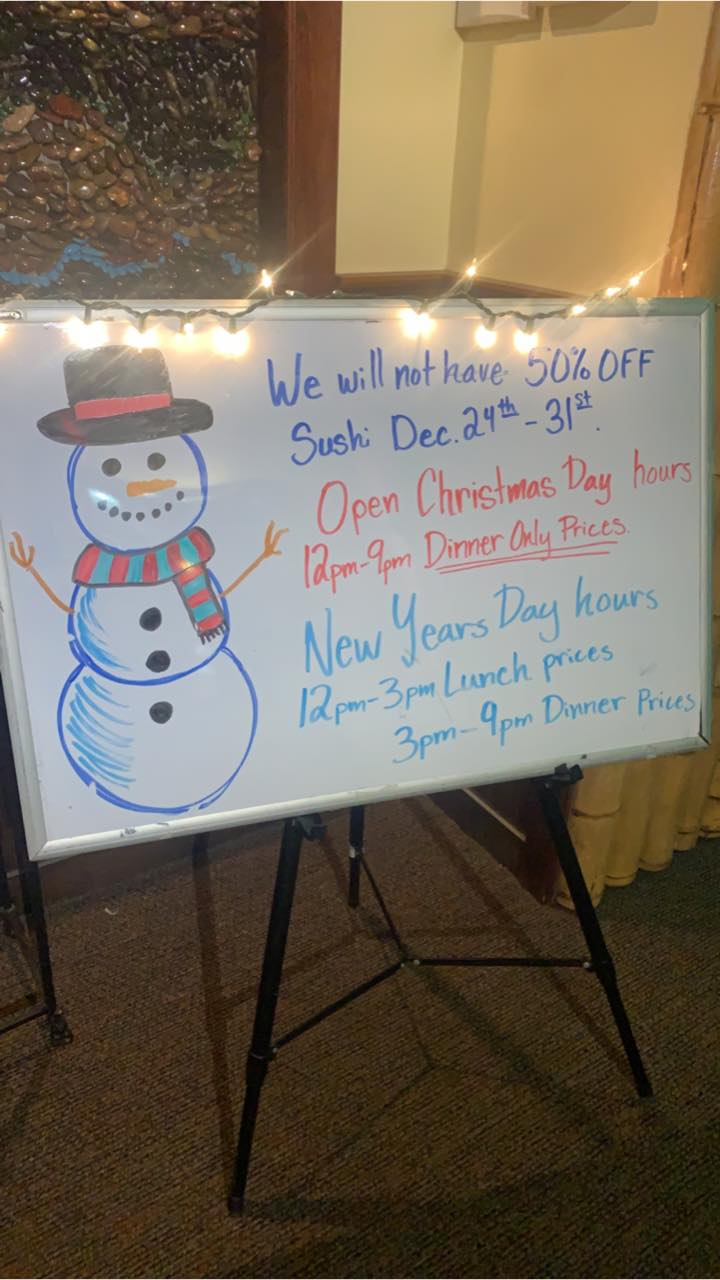 We will not have 50% OFF
Sushi Dec. 24th - 31st.
Open Christmas Day hours
12pm-9pm Dinner Only Prices.
New Years Day hours
12pm-3pm Lunch prices
3pm-9pm Dinner Prices